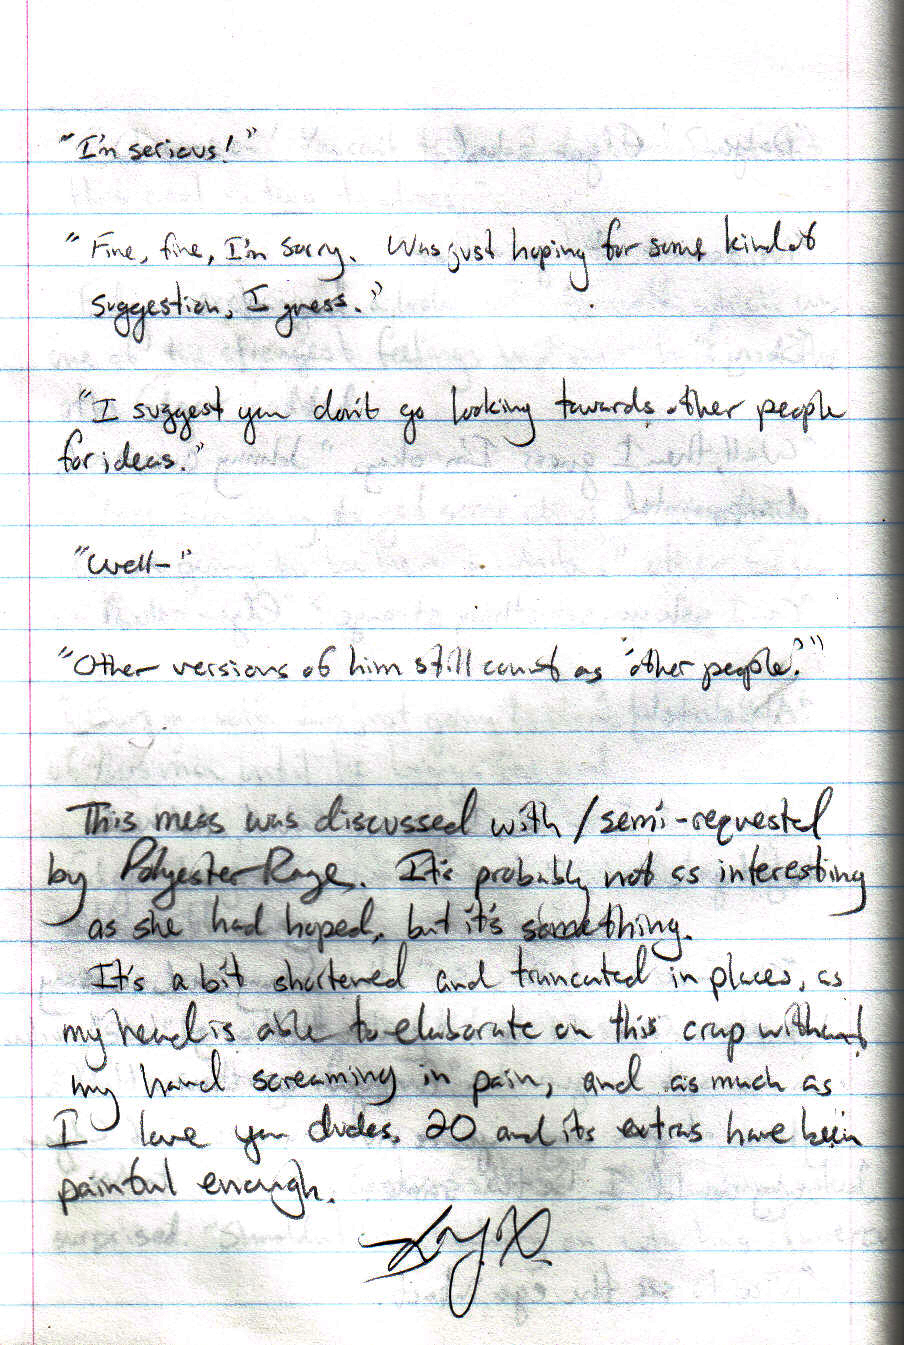 "I'm serious!"
"Fine, fine, I'm sorry. Was just hoping for some kind of
suggestion, I guess."
"I suggest you don't go looking towards other people
for ideas."
"Well-"
"Other versions of him still count as 'other people.'"
This mess was discussed with/semi-requested
by PolyesterRage. It's probably not as interesting
as she had hoped, but it's something.
It's a bit shortened and truncated in places, as
my head is able to elaborate on this crap without
my hand screaming in pain, and as much as
I love you dudes, 20 and its extras have been
painful enough.